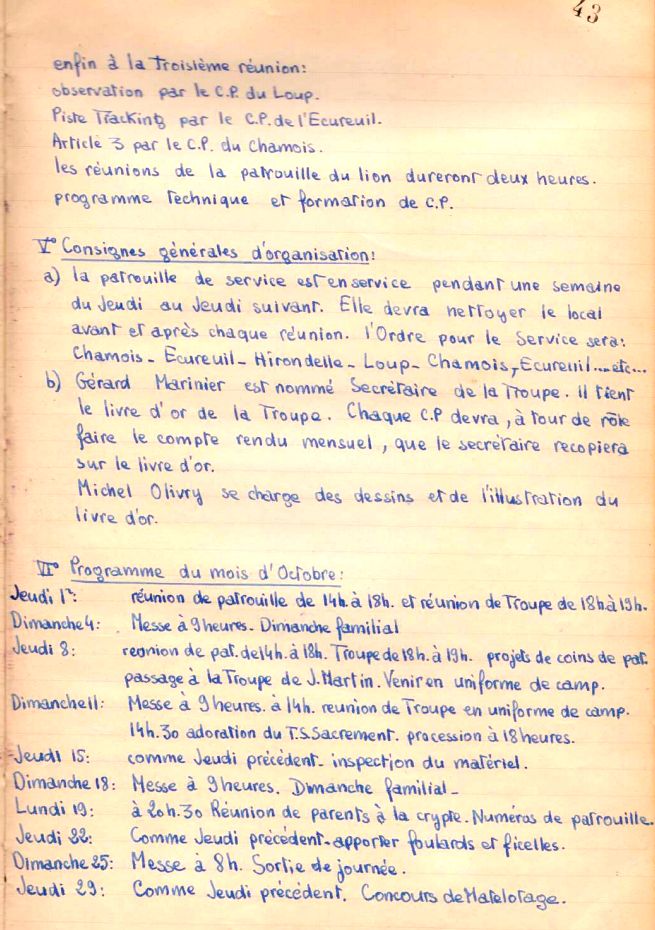 43
enfin à la Troisième réunion:
observation par le C.P. du Loup.
Piste Tracking par le C.P. de l'Ecureuil.
Article 3 par le C.P. du Chamois.
les réunions de la patrouille du lion dureront deux heures.
programme Technique et formation de C.P.
V° Consignes générales d'organisation:
a) la patrouille de service est en service pendant une semaine
du Jeudi au Jeudi suivant. Elle devra nettoyer le local
avant et après chaque réunion. l'Ordre pour le Service sera:
Chamois - Ecureuil - Hirondelle - Loup - Chamois, Ecureuil....etc...
b) Gérard Marinier est nommé Secrétaire de la Troupe. il tient
le livre d'or de la Troupe. Chaque C.P devra, à tour de rôle
faire le compte rendu mensuel, que le secrétaire recopiera
sur le livre d'or.
Michel Olivry se charge des dessins et de l'illustration du
livre d'or.
VI° Programme du mois d'Octobre:
Jeudi 1er: réunion de patrouille de 14h. à 18h. et réunion de Troupe de 18h à 19h.
Dimanche 4: Messe à 9 heures. Dimanche familial
Jeudi 8: reunion de pat. de 14h. à 18h. Troupe de 18h. à 19h. projets de coins de pat.
passage à la Troupe de J. Martin. Venir en uniforme de camp.
Dimanche 11: Messe à 9 heures. à 14h. reunion de Troupe en uniforme de camp.
14h.30 adoration du T.S. Sacrement. procession à 18 heures.
Jeudi 15: comme Jeudi précédent - inspection du matériel.
Dimanche 18: Messe à 9 heures. Dimanche familial -
Lundi 19: à 20h.30 Réunion de parents à la crypte. Numéros de patrouille.
Jeudi 22: Comme Jeudi précédent - apporter foulards et ficelles.
Dimanche 25: Messe à 8h. Sortie de journée.
Jeudi 29: Comme Jeudi précédent. Concours de Matelotage.